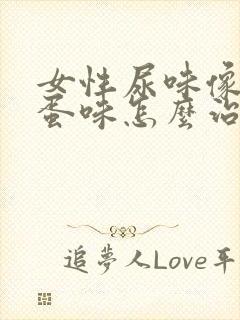 女性尿味像
蛋味怎麼治
追夢人Love平